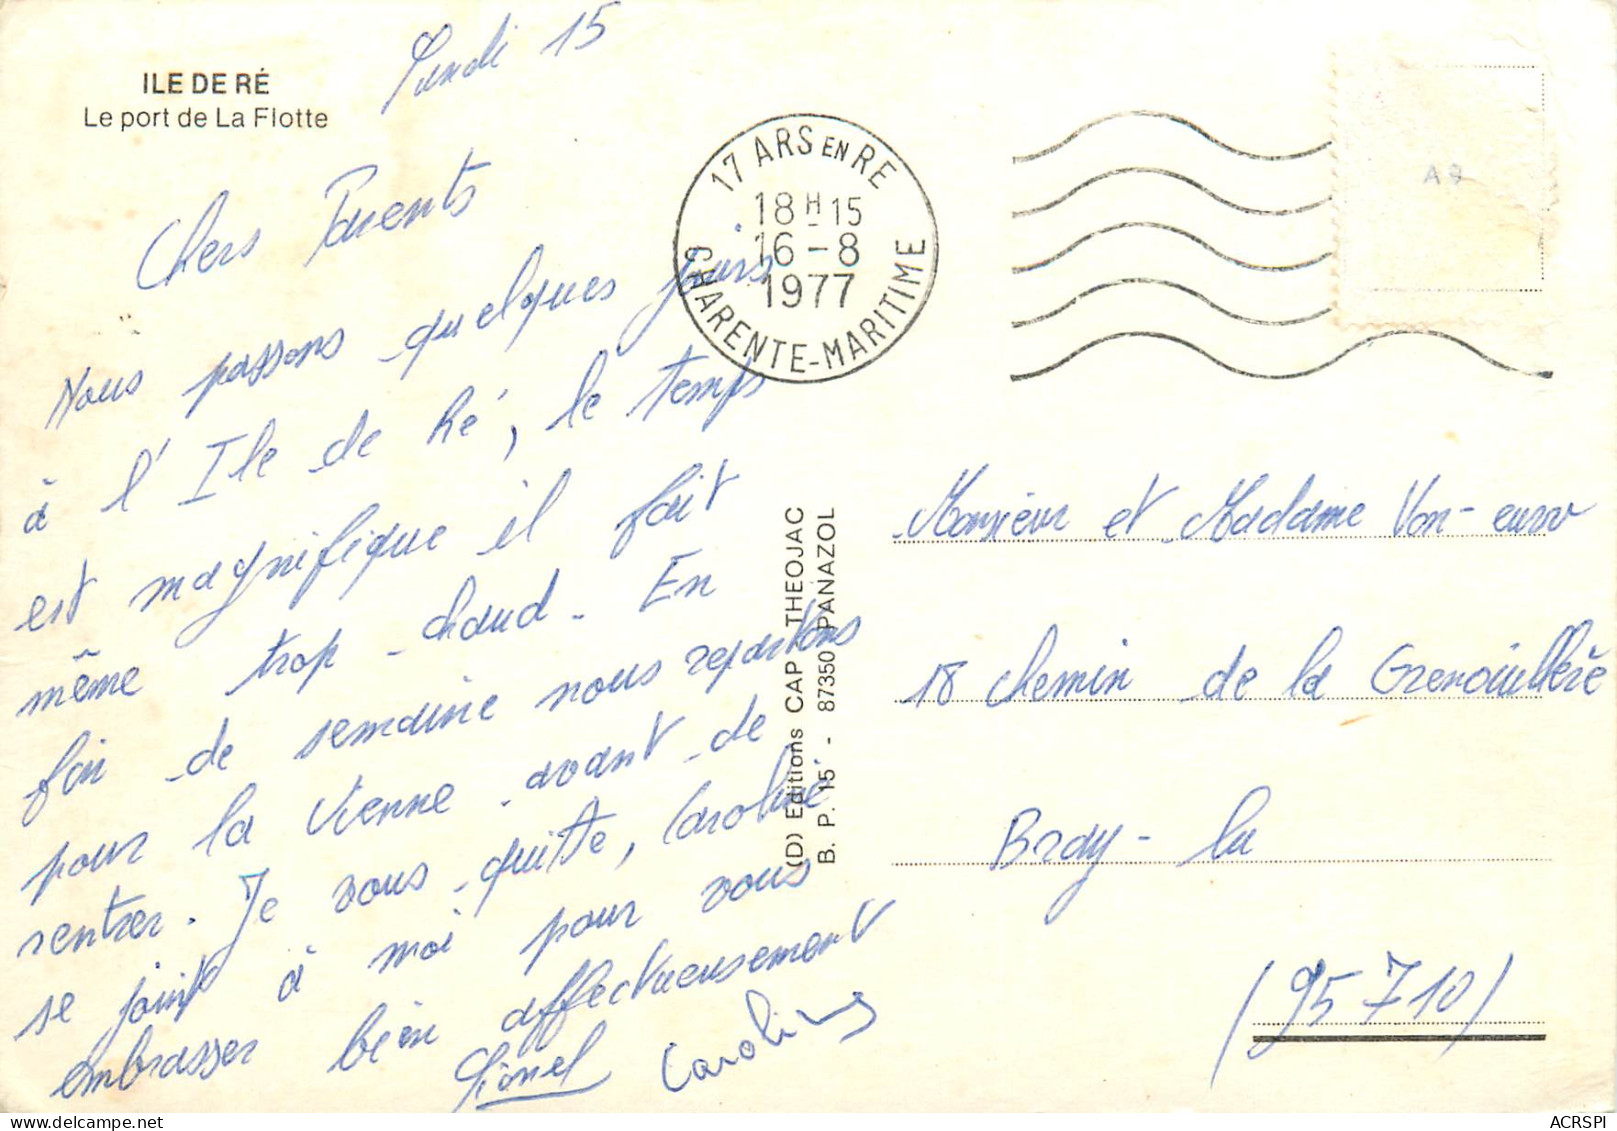 ILE DE RÉ
Le port de La Flotte
Lundi 15
Chers Parents
Nous passons quelques jours
à l'Ile de Ré, le temps
est magnifique il fait
même trop chaud. En
fin de semaine nous repartons
pour la Vienne avant de
rentrer. Je vous quitte, Caroline
se joint à moi pour vous
embrasser bien affectueusement
Lionel Caroline
17 ARS EN RE
18H15
16-8
1977
CHARENTE-MARITIME
A8
(D) Editions CAP THEOJAC
B. P. 15 - 87350 PANAZOL
Monsieur et Madame Von-euw
18 chemin de la Grenouillère
Bray-lu
(95710)
ACRSPI